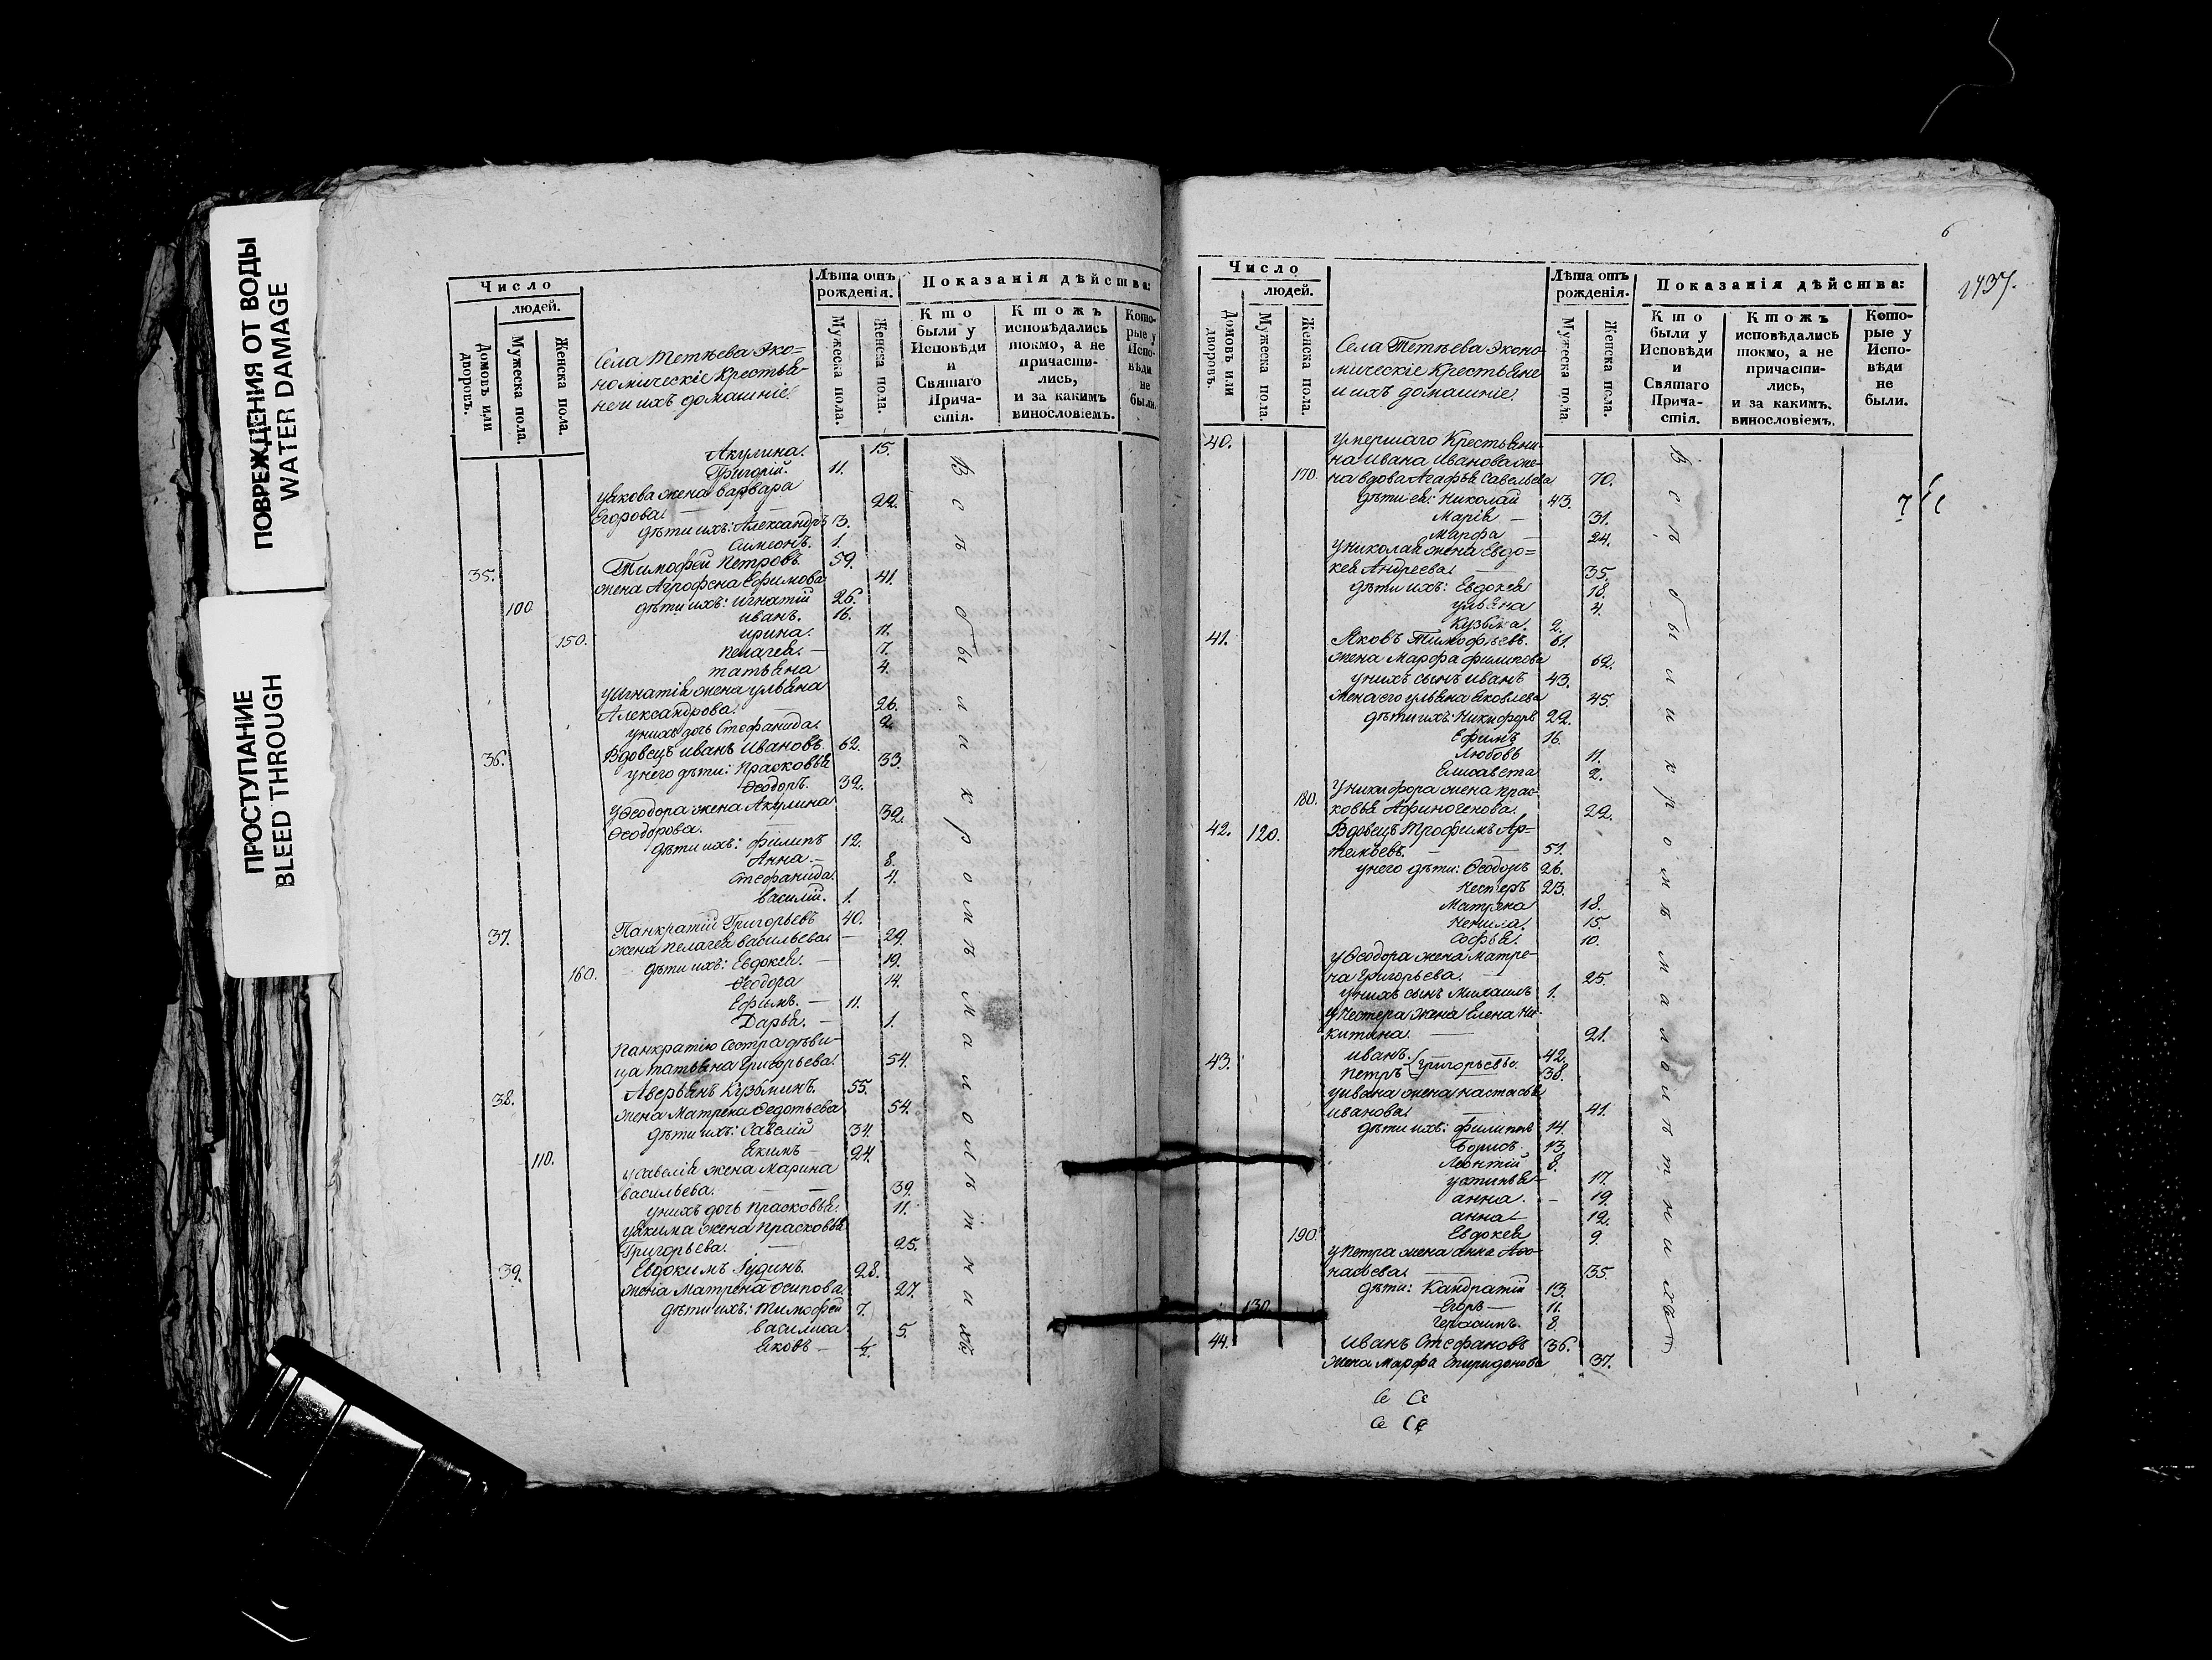 ПОВРЕЖДЕНИЯ ОТ ВОДЫ
WATER DAMAGE
ПРОСТУПАНИЕ
BLEED THROUGH
Число
людей.
Домовъ или дворовъ.
Мужеска пола.
Женска пола.
Села Тетѣева Эко=
номическіе Крестья-
не и ихъ домашніе.
Лѣта отъ рожденія.
Мужеска пола.
Женска пола.
Показанія дѣйства:
Кто были у Исповѣди и Святаго Причастія.
Ктожъ исповѣдались токмо, а не причастились, и за какимъ винословіемъ.
Которые у Исповѣди не были.
Акулина. 15.
Григорій. 11.
у Якова жена Варвара
Егорова. 22.
дѣти ихъ: Александръ 3.
Симеонъ. 1.
35. Тимофей Петровъ. 59.
жена Агрофена Ефимова 41.
100. дѣти ихъ: Игнатій 26.
Иванъ. 16.
150. Ирина. 11.
Пелагея. 7.
Татьяна 4.
у Игнатія жена Ульяна
Александрова. 26.
у нихъ дочь Стефанида. 2.
36. Вдовецъ Иванъ Ивановъ. 62.
у него дѣти: Прасковья 33.
Ѳеодоръ. 32.
у Ѳеодора жена Акулина
Ѳеодорова. 32.
дѣти ихъ: Филипъ 12.
Анна. 8.
Стефанида. 4.
Василій. 1.
37. Панкратій Григорьевъ 40.
жена Пелагея Васильева 29.
160. дѣти ихъ: Евдокея. 19.
Ѳеодора 14.
Ефимъ. 11.
Дарья. 1.
Панкратію сестра дѣви-
ца Татьяна Григорьева. 54.
38. Аверьянъ Кузьминъ. 55.
жена Матрена Ѳедотьева 54.
дѣти ихъ: Савелій 34.
110. Якимъ 24.
у Савелія жена Марина
Васильева. 39.
у нихъ дочь Прасковья. 11.
у Якима жена Прасковья
Григорьева. 25.
39. Евдокимъ Гудинъ. 28.
жена Матрена Осипова. 27.
дѣти ихъ: Тимофей 7.
Василиса 5.
Яковъ 2.
Всѣ были и кромѣ маи онѣтнихъ
6
2437.
Число
людей.
Домовъ или дворовъ.
Мужеска пола.
Женска пола.
Села Тетѣева Эконо
мическіе Крестьяне
и ихъ домашніе.
Лѣта отъ рожденія.
Мужеска пола.
Женска пола.
Показанія дѣйства:
Кто были у Исповѣди и Святаго Причастія.
Ктожъ исповѣдались токмо, а не причастились, и за какимъ винословіемъ.
Которые у Исповѣди не были.
40. умершаго Крестьяни-
на Ивана Иванова же-
170. на вдова Агафья Савельева 70.
дѣти ея: Николай 43.
Марія 31.
Марфа 24.
у Николая жена Евдо=
кея Андреева. 35.
дѣти ихъ: Евдокея 18.
Ульяна 4.
Кузьма. 2.
41. Яковъ Тимофѣевъ. 61.
жена Марфа Филипова 62.
у нихъ сынъ Иванъ 43.
жена его Ульяна Яковлева 45.
дѣти ихъ: Никифоръ 22.
Ефимъ 16.
Любовь 11.
Елисавета 2.
у Никифора жена Прас-
180. ковья Афиногенова. 22.
42. 120. Вдовецъ Трофимъ Ар=
темьевъ. 51.
у него дѣти: Ѳеодоръ 26.
Нестеръ 23.
Матрена 18.
Ненила. 15.
Софья. 10.
у Ѳеодора жена Матре-
на Григорьева. 25.
у нихъ сынъ Михаилъ 1.
у Нестера жена Елена Ни-
китина. 21.
43. Иванъ. 42.
Петръ Григорьевы. 38.
у Ивана жена Настасья
Иванова. 41.
дѣти ихъ: Филиппъ 14.
Борисъ. 13.
Леонтій 8.
Устинья 17.
Анна. 19.
Анна 12.
190. Евдокея 9.
у Петра жена Анна Афо-
насьева. 35.
дѣти: Кандратій 13.
130. Егоръ 11.
Герасимъ. 8.
44. Иванъ Стефановъ 36.
жена Марфа Спиридонова 37.